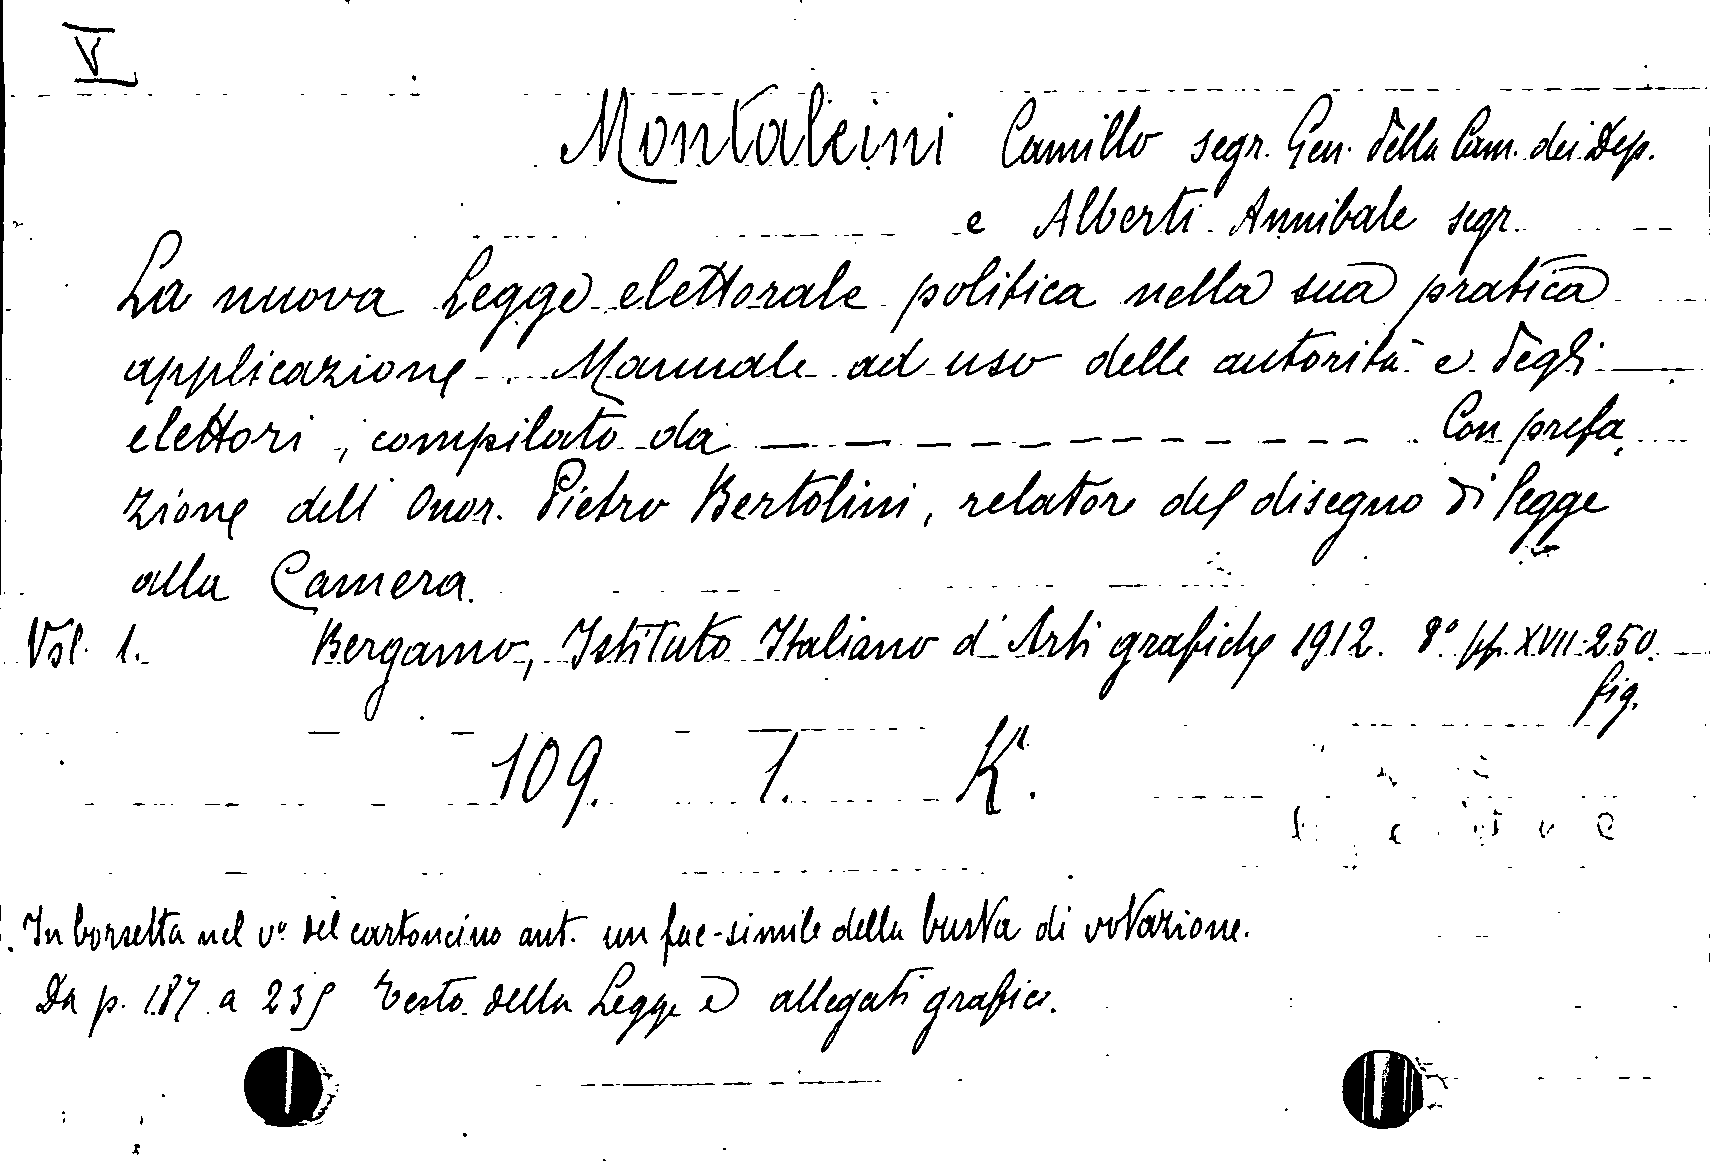 V
Montalcini Camillo segr. Gen. della Cam. dei Dep.
e Alberti Annibale segr.
La nuova Legge elettorale politica nella sua pratica
applicazione. Manuale ad uso delle autorità e degli
elettori, compilato da — — — — — — — — — — — — . Con prefa
zione dell'Onor. Pietro Bertolini, relatore del disegno di legge
alla Camera.
Vol. 1. Bergamo, Istituto Italiano d'Arti grafiche 1912. 8° pp. XVII-250.
fig.
109. 1. K.
In borsetta nel v° del cartoncino ant. un fac-simile della busta di votazione.
Da p. 187 a 239 testo della Legge e allegati grafici.